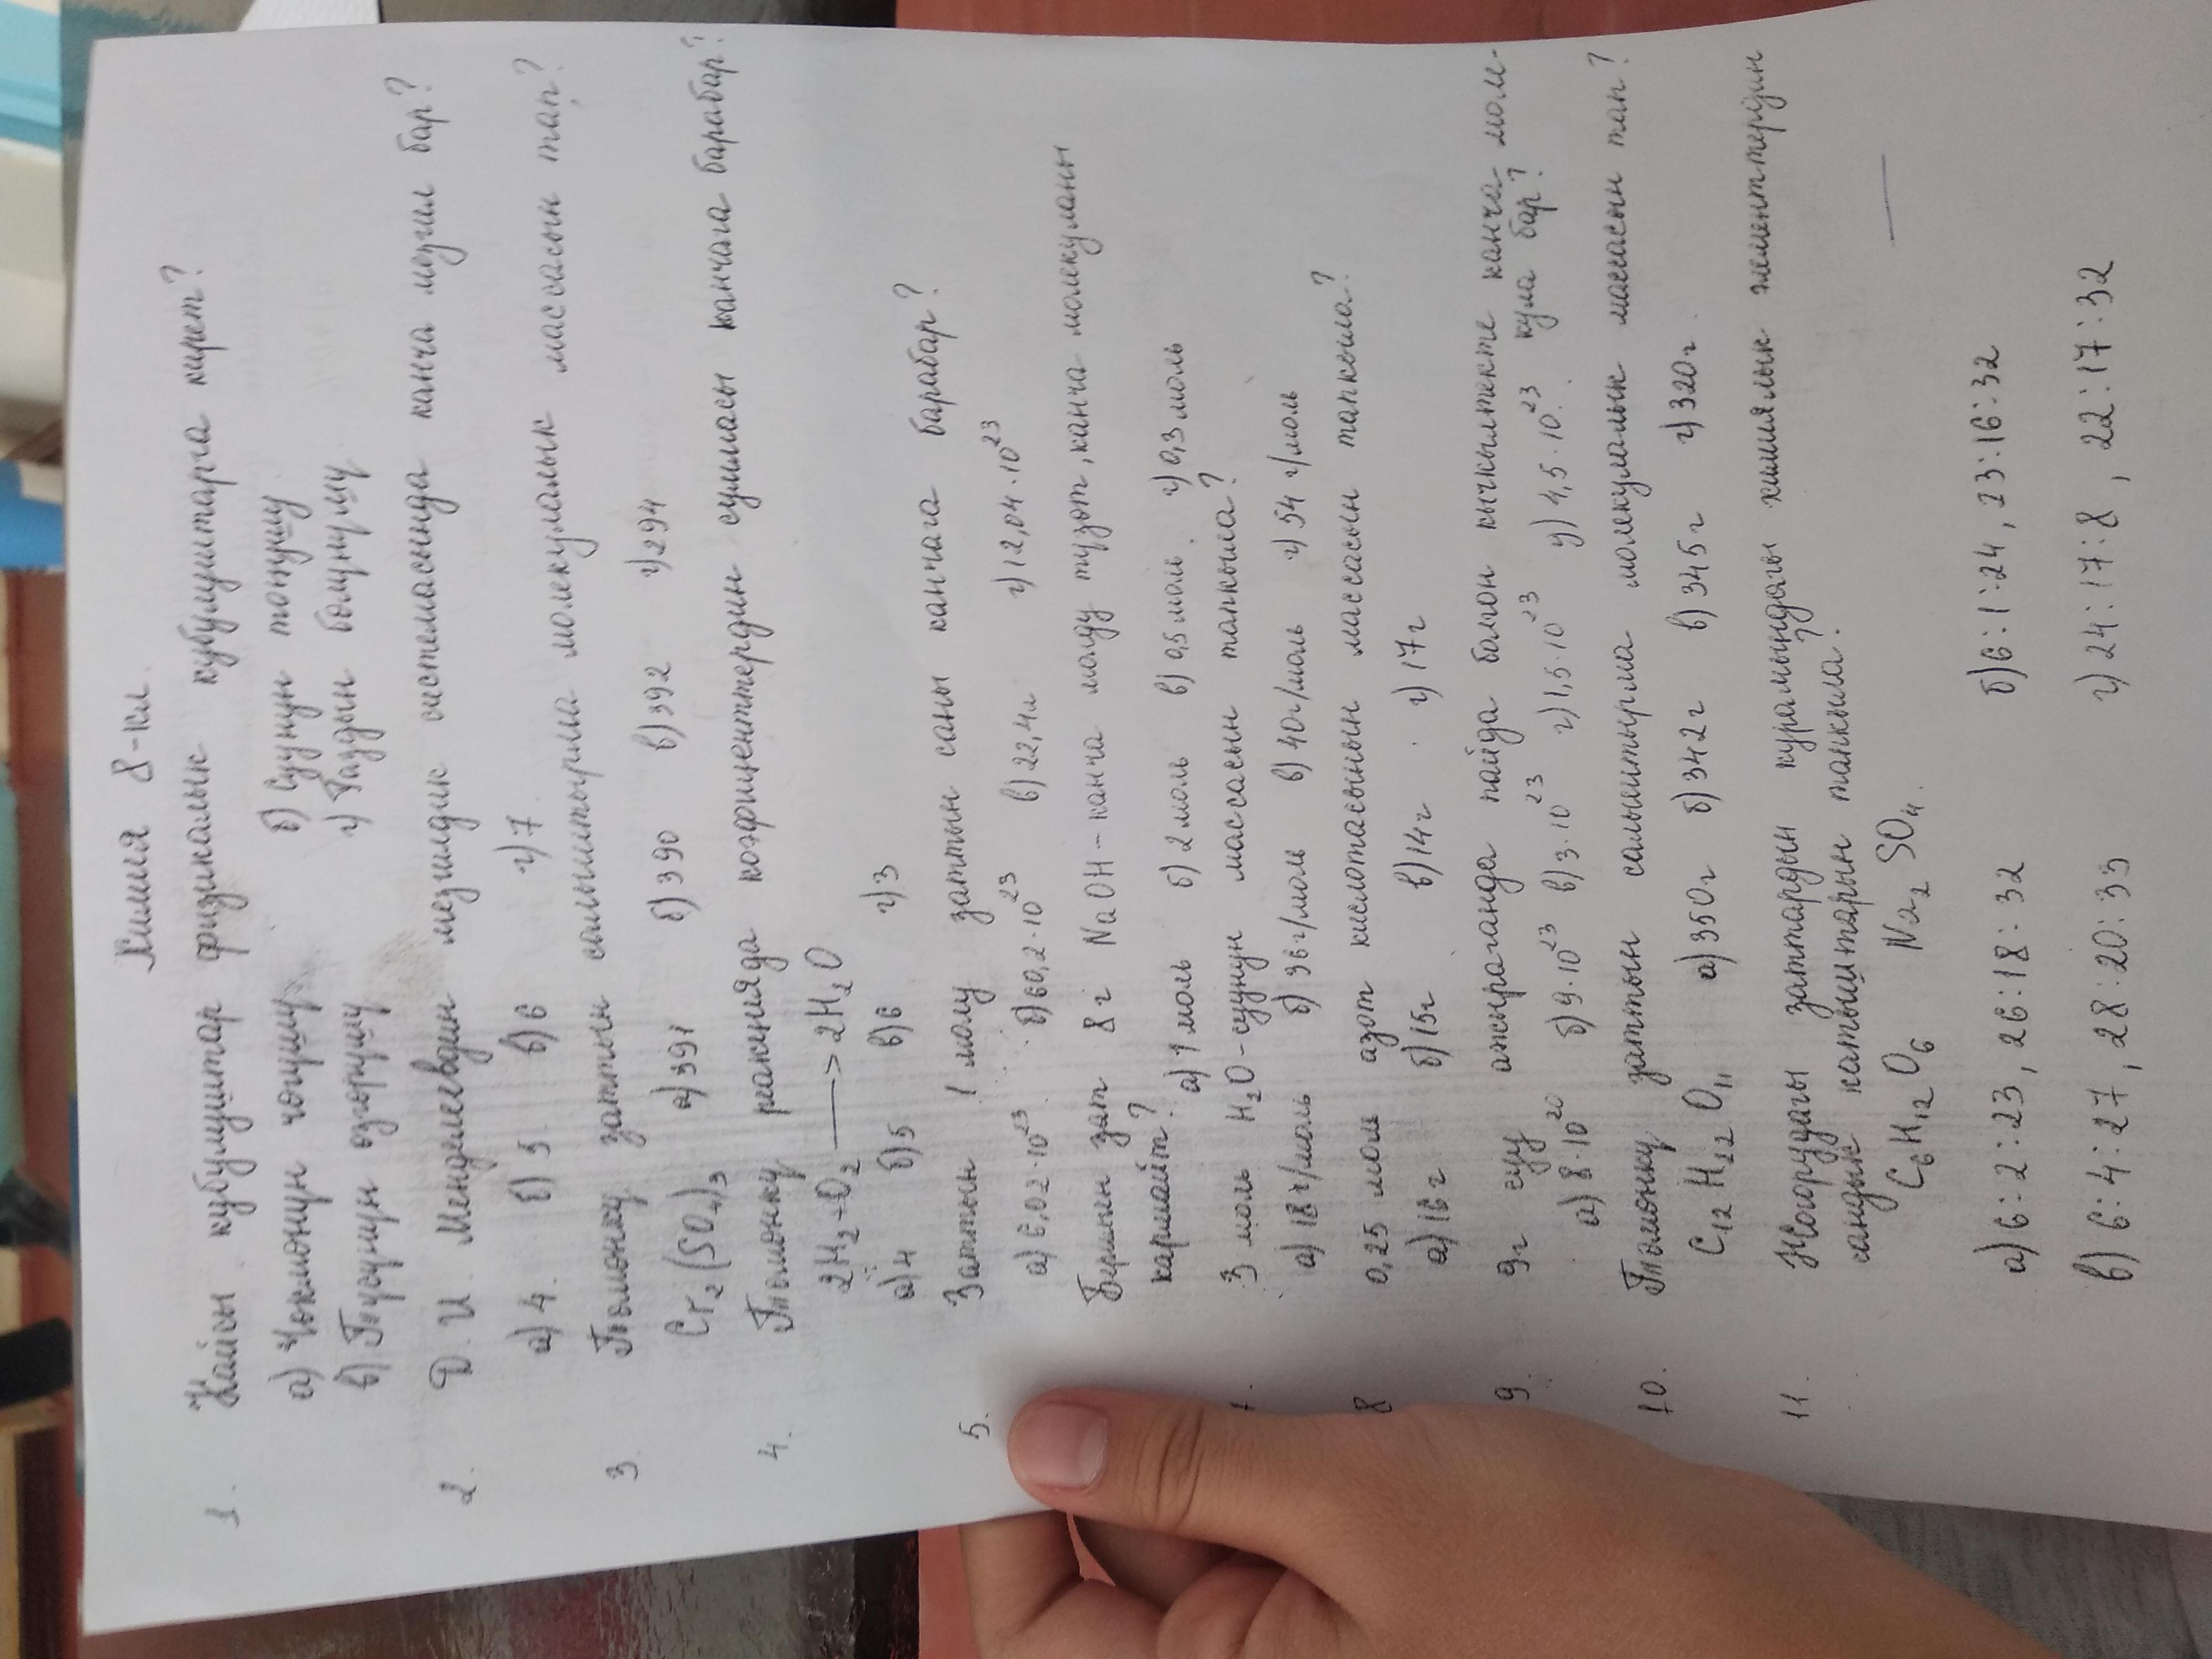 Химия 8-кл.
1. Кайсы кубулуштар физикалык кубулуштарга кирет?
а) Чокмонун чогушу б) Суунун тоңушу
в) Түсүнүн өзгөрүшү г) Газдын бөлүнүшү
2. Д. И. Менделеевдин мезгилдик системасында канча мезгил бар?
а) 4. б) 5 в) 6 г) 7
3. Төмөнкү заттын салыштырма молекулалык массасын тап?
Cr2(SO4)3 а) 391 б) 390 в) 392 г) 294
4. Төмөнкү реакцияда коэфициенттердин суммасы канчага барабар?
2H2 + O2 ⟶ 2H2O
а) 4 б) 5 в) 6 г) 3
5. Заттын 1 молу заттын саны канчага барабар?
а) 6,02·10²³ б) 60,2·10²³ в) 22,4л г) 12,04·10²³
Берилген зат 8 г NaOH – канча молду түзөт, канча молекуланы
кармайт? а) 1 моль б) 2 моль в) 0,5 моль г) 0,3 моль
3 моль H2O – суунун массасын тапкыла?
а) 18 г/моль б) 36 г/моль в) 40 г/моль г) 54 г/моль
8 0,25 моль азот кислотасынын массасын тапкыла?
а) 16 г б) 15 г в) 14 г г) 17 г
9. 9г суу ажыраганда пайда болгон кычкылтекте канча моле-
кула бар?
а) 8·10²⁰ б) 9·10²³ в) 3·10²³ г) 1,5·10²³ д) 4,5·10²³
10. Төмөнкү заттын салыштырма молекулалык массасын тап?
C12H22O11 а) 350г б) 342 г в) 345 г г) 320г.
11. Жогорудагы заттардын курамындагы химиялык элементтердин
сандык катыштарын тапкыла?
C6H12O6 Na2SO4.
а) 6:2:23, 26:18:32 б) 6:1:24, 23:16:32
в) 6:4:27, 28:20:33 г) 24:17:8, 22:17:32